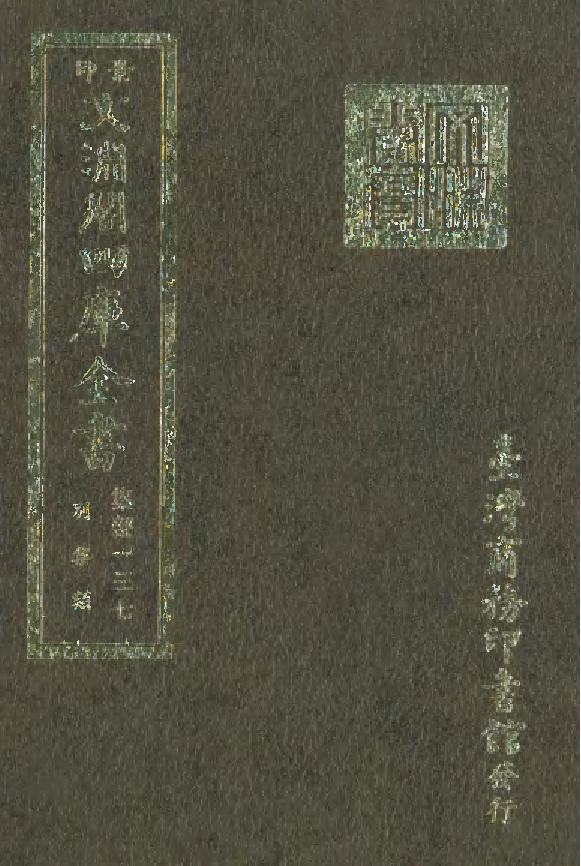 景印
文淵閣四庫全書
集部一三七
別集類
臺灣商務印書館發行